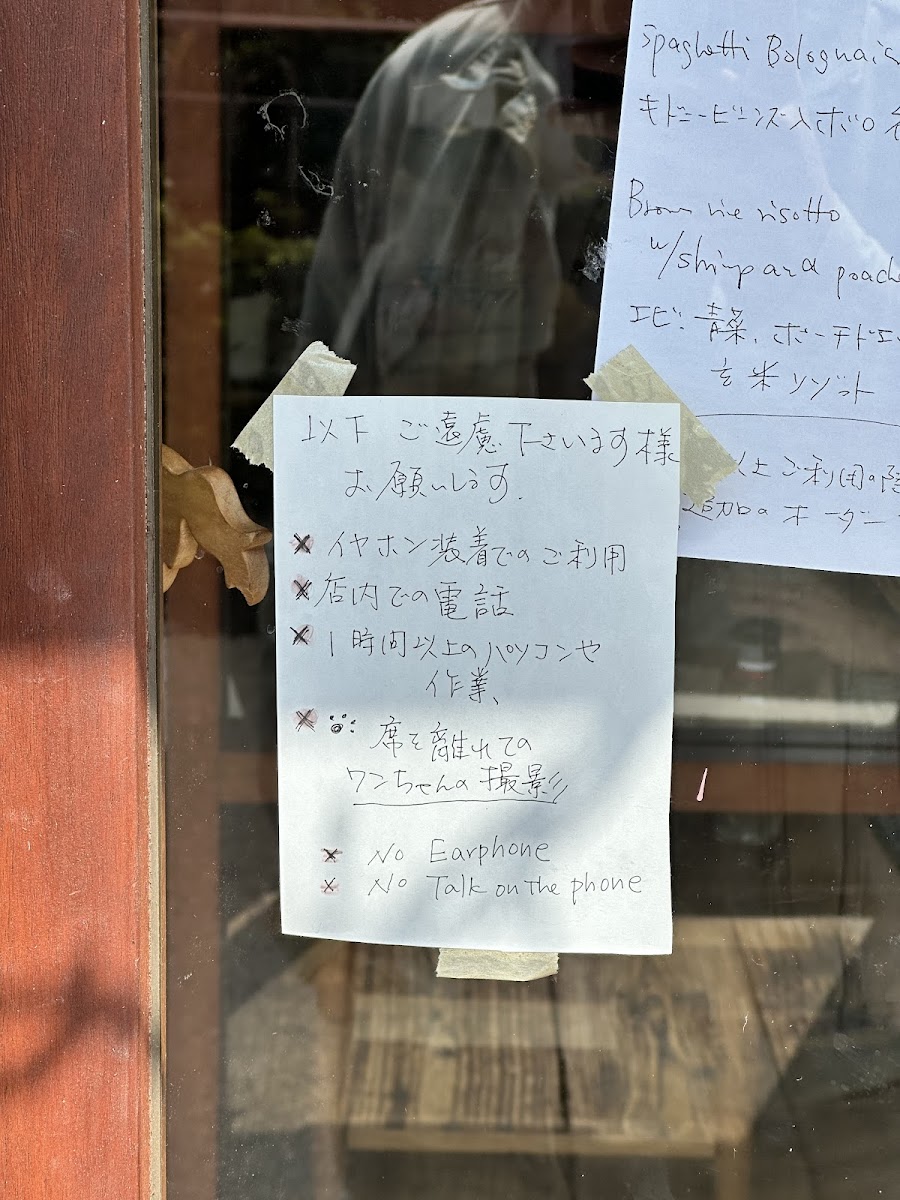 以下 ご遠慮下さいます様
お願いします.
× イヤホン装着でのご利用
× 店内での電話
× 1時間以上のパソコンや
作業、
× 席を離れての
ワンちゃんの撮影
× No Earphone
× No Talk on the phone
Spaghetti
キドニービーンズ入ボロ
Brown rice risotto
w/shimp and
エビ. 青菜. ポーチドエ
玄米リゾット
ご利用の際
追加のオーダー